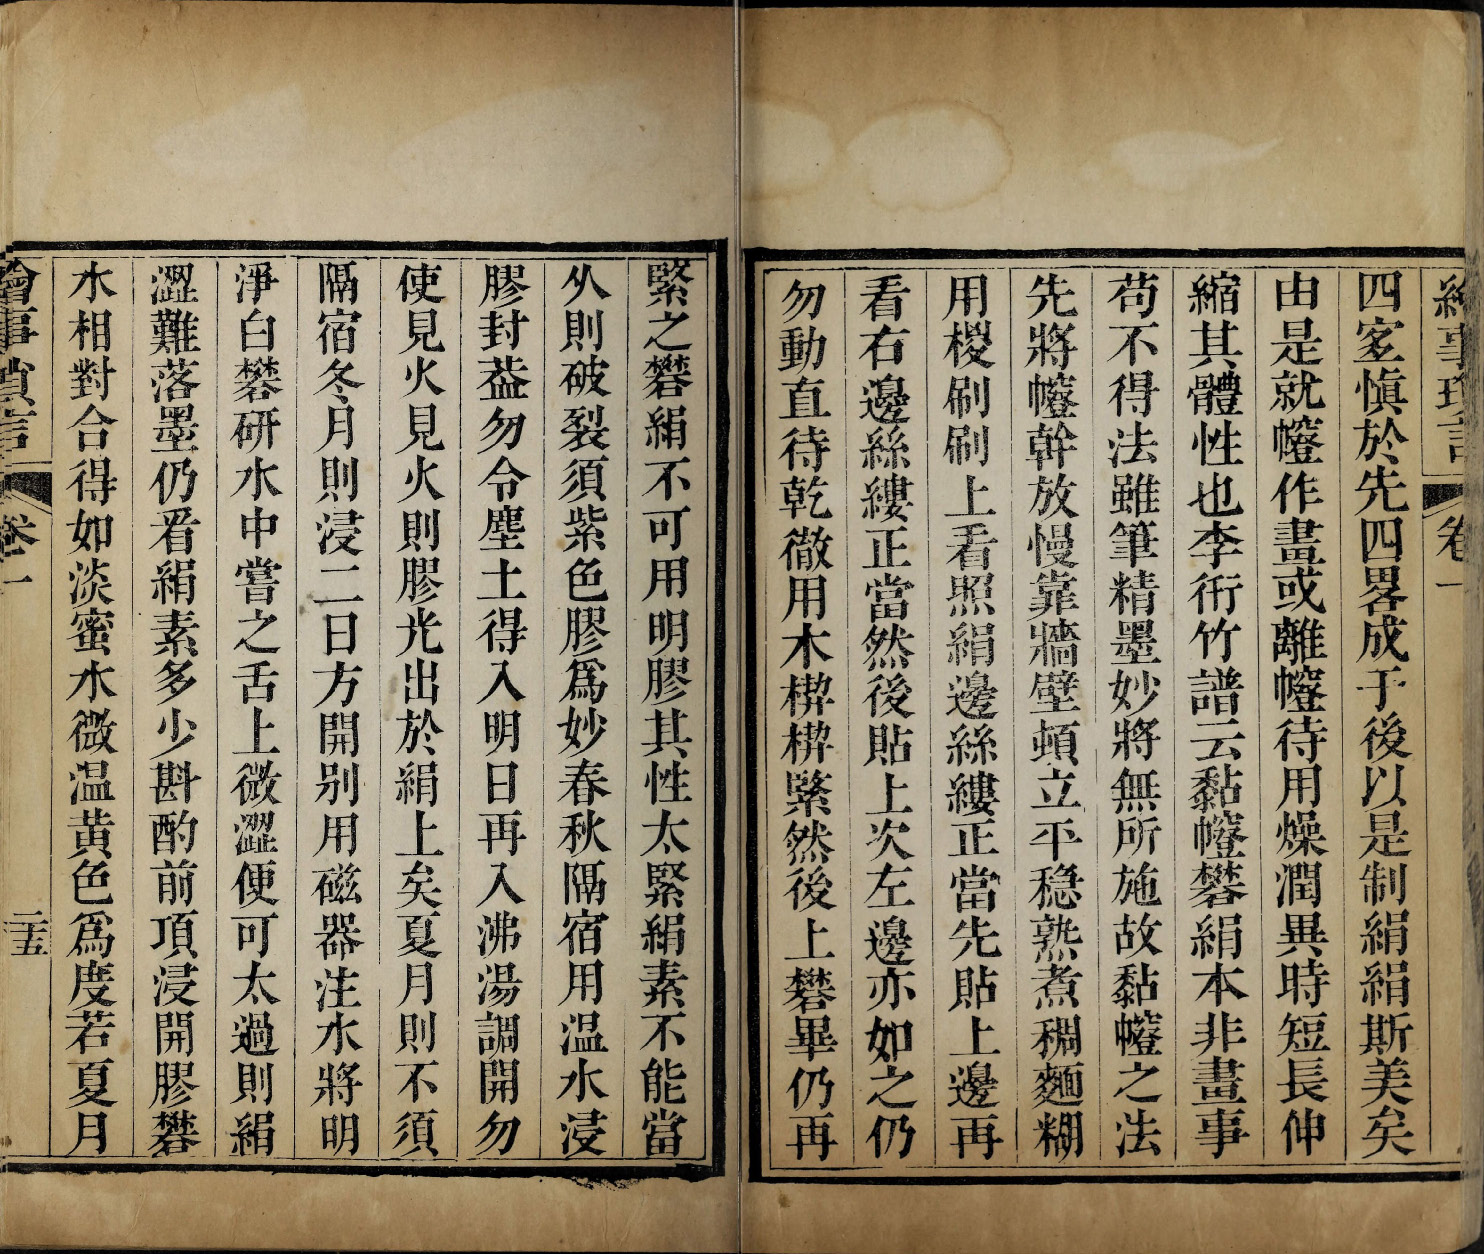 繪事瑣言 卷一
四䆫愼於先四畧成于後以是制絹絹斯美矣
由是就㡧作畫或離㡧待用燥潤異時短長伸
縮其體性也李衎竹譜云黏㡧礬絹本非畫事
苟不得法雖筆精墨妙將無所施故黏㡧之法
先將㡧幹放慢靠牆壁頓立平穩熟煮稠麵糊
用椶刷刷上看照絹邊絲縷正當先貼上邊再
看右邊絲縷正當然後貼上次左邊亦如之仍
勿動直待乾徹用木楔楔緊然後上礬畢仍再
緊之礬絹不可用明膠其性太緊絹素不能當
久則破裂須紫色膠爲妙春秋隔宿用温水浸
膠封葢勿令塵土得入明日再入沸湯調開勿
使見火見火則膠光出於絹上矣夏月則不須
隔宿冬月則浸二日方開别用磁器注水將明
淨白礬研水中嘗之舌上微澀便可太過則絹
澀難落墨仍看絹素多少斟酌前項浸開膠礬
水相對合得如淡蜜水微温黄色爲度若夏月
繪事瑣言 卷一 二十五